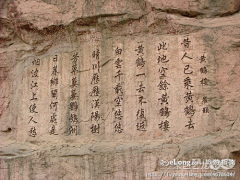 黄鶴樓 崔顥
昔人已乘黄鶴去
此地空餘黄鶴樓
黄鶴一去不復返
白雲千載空悠悠
晴川歷歷漢陽樹
芳草萋萋鸚鵡洲
日暮鄉關何處是
烟波江上使人愁
eLong.com